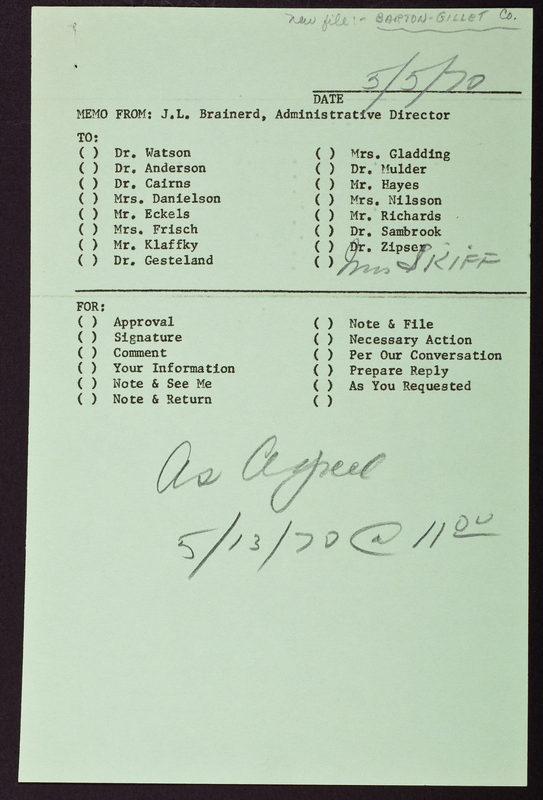 new file:- BARTON-GILLET Co.
5/5/70
DATE
MEMO FROM: J.L. Brainerd, Administrative Director
TO:
( ) Dr. Watson
( ) Dr. Anderson
( ) Dr. Cairns
( ) Mrs. Danielson
( ) Mr. Eckels
( ) Mrs. Frisch
( ) Mr. Klaffky
( ) Dr. Gesteland
( ) Mrs. Gladding
( ) Dr. Mulder
( ) Mr. Hayes
( ) Mrs. Nilsson
( ) Mr. Richards
( ) Dr. Sambrook
( ) Dr. Zipser
( ) Mrs SKIFF
FOR:
( ) Approval
( ) Signature
( ) Comment
( ) Your Information
( ) Note & See Me
( ) Note & Return
( ) Note & File
( ) Necessary Action
( ) Per Our Conversation
( ) Prepare Reply
( ) As You Requested
( )
As Agreed
5/13/70 @ 11 00